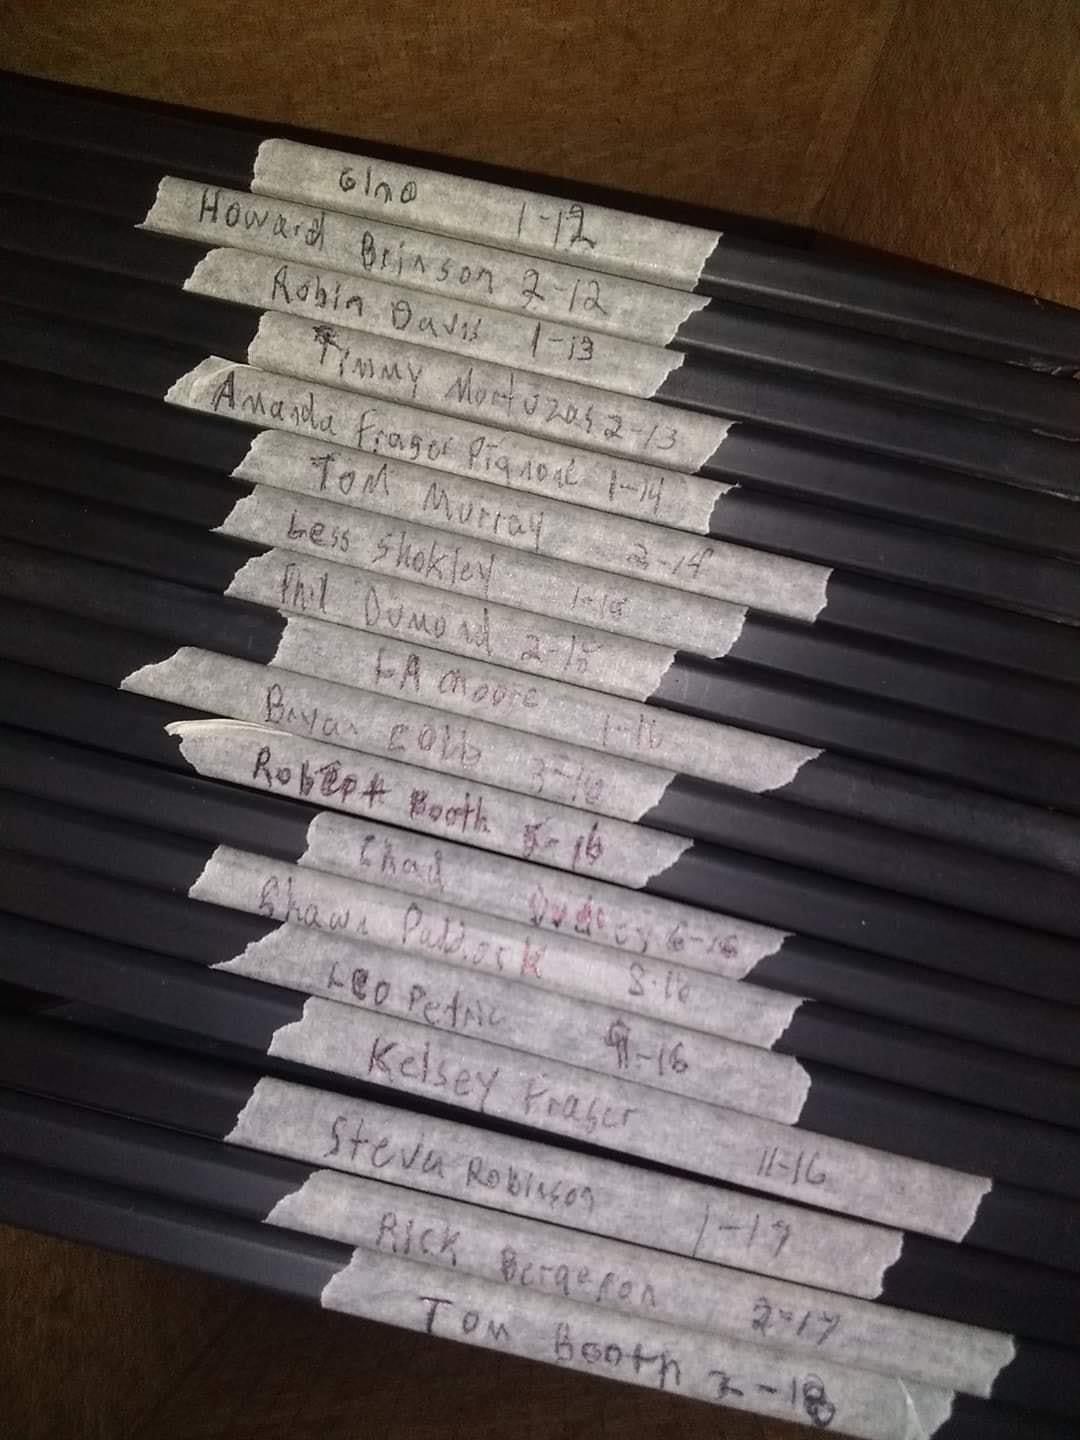 Gino 1-12
Howard Brinson 2-12
Robin Davis 1-13
Timmy 2-13
Amanda Fraser 1-14
Tom Murray 2-14
Less Shokley 1-15
Phil Dumond 2-15
LA Moore 1-16
Bryan Cobb 3-16
Robert Booth 5-16
Chad Dudley 6-16
Shawn 8-16
Leo Petric 9-16
Kelsey Fraser 11-16
Steven Robinson 1-17
Rick Bergeron 2-17
Tom Booth 2-18